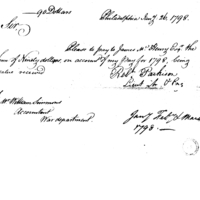 90 Dollars
Philadelphia Jany 26, 1798.
Sir
Please to pay to James McHenry Esq. the
sum of Ninety dollars on account of my pay for 1798, being
value received
Robt Parkison
Lieut
Mr William Simmons
Accountant
War department
Jany Feb & March
1798